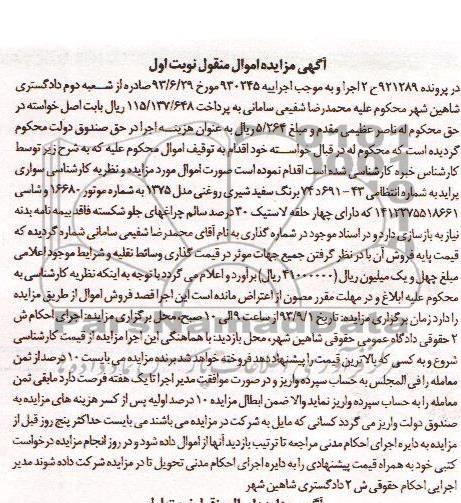 آگهی مزایده اموال منقول نوبت اول
در پرونده ۹۲۱۲۸۹ ح ۲ اجرا و به موجب اجراییه ۹۳۰۲۴۵ مورخ ۹۳/۶/۲۹ صادره از شعبه دوم دادگستری
شاهین شهر محکوم علیه محمدرضا شفیعی سامانی به پرداخت ۱۱۵/۱۳۷/۶۴۸ ریال بابت اصل خواسته در
حق محکوم له ناصر عظیمی مقدم و مبلغ ۵/۲۶۴ ریال به عنوان هزینه اجرا در حق صندوق دولت محکوم
گردیده است که محکوم له در قبال خواسته خود اقدام به توقیف اموال محکوم علیه که به شرح زیر توسط
کارشناس خبره کارشناسی شده است اقدام نموده است صورت اموال مورد مزایده و نظریه کارشناسی سواری
پراید به شماره انتظامی ۴۳ - ۶۹۱ د ۷۴ برنگ سفید شیری روغنی مدل ۱۳۷۵ به شماره موتور ۱۶۶۸۰ و شاسی
۱۴۱۲۳۷۵۵۱۸۶۶۱ که دارای چهار حلقه لاستیک ۳۰ درصد سالم چراغهای جلو شکسته فاقد بیمه نامه بدنه
نیاز به بازسازی دارد و در اسناد موجود در شماره گذاری به نام آقای محمدرضا شفیعی سامانی شماره گردیده که
قیمت پایه فروش آن با در نظر گرفتن جمیع جهات موثر در قیمت گذاری وسائط نقلیه و شرایط موجود اعلامی
مبلغ چهل و یک میلیون ریال (۴۱۰۰۰۰۰۰ ریال) برآورد و اعلام می گردد با توجه به اینکه نظریه کارشناسی به
محکوم علیه ابلاغ و در مهلت مقرر مصون از اعتراض مانده است این اجرا قصد فروش اموال از طریق مزایده
را دارد زمان برگزاری مزایده: تاریخ ۹۳/۹/۱ از ساعت ۹ الی ۱۰ صبح محل برگزاری مزایده: اجرای احکام ش
۲ حقوقی دادگاه عمومی حقوقی شاهین شهر، محل بازدید: با هماهنگی این اجرا مزایده از قیمت کارشناسی
شروع و به کسی که بالاترین قیمت را پیشنهاد دهد فروخته خواهد شد برنده مزایده می بایست ۱۰ درصد از ثمن
معامله را فی المجلس به حساب سپرده واریز و در صورت موافقت مدیر اجرا تا یک هفته فرصت دارد مابقی ثمن
معامله را به حساب سپرده واریز نماید والا ضمن ابطال مزایده ۱۰ درصد اولیه پس از کسر هزینه های مزایده به
صندوق دولت واریز می گردد کسانی که مایل به شرکت در مزایده می باشند می بایست حداکثر پنج روز قبل از
مزایده به دایره اجرای احکام مدنی مراجعه تا ترتیب بازدید آنها از اموال داده شود و در روز انجام مزایده درخواست
کتبی خود به همراه قیمت پیشنهادی را به دایره اجرای احکام مدنی تحویل تا در مزایده شرکت داده شوند مدیر
اجرایی احکام حقوقی ش ۲ دادگستری شاهین شهر
ParsNamadData